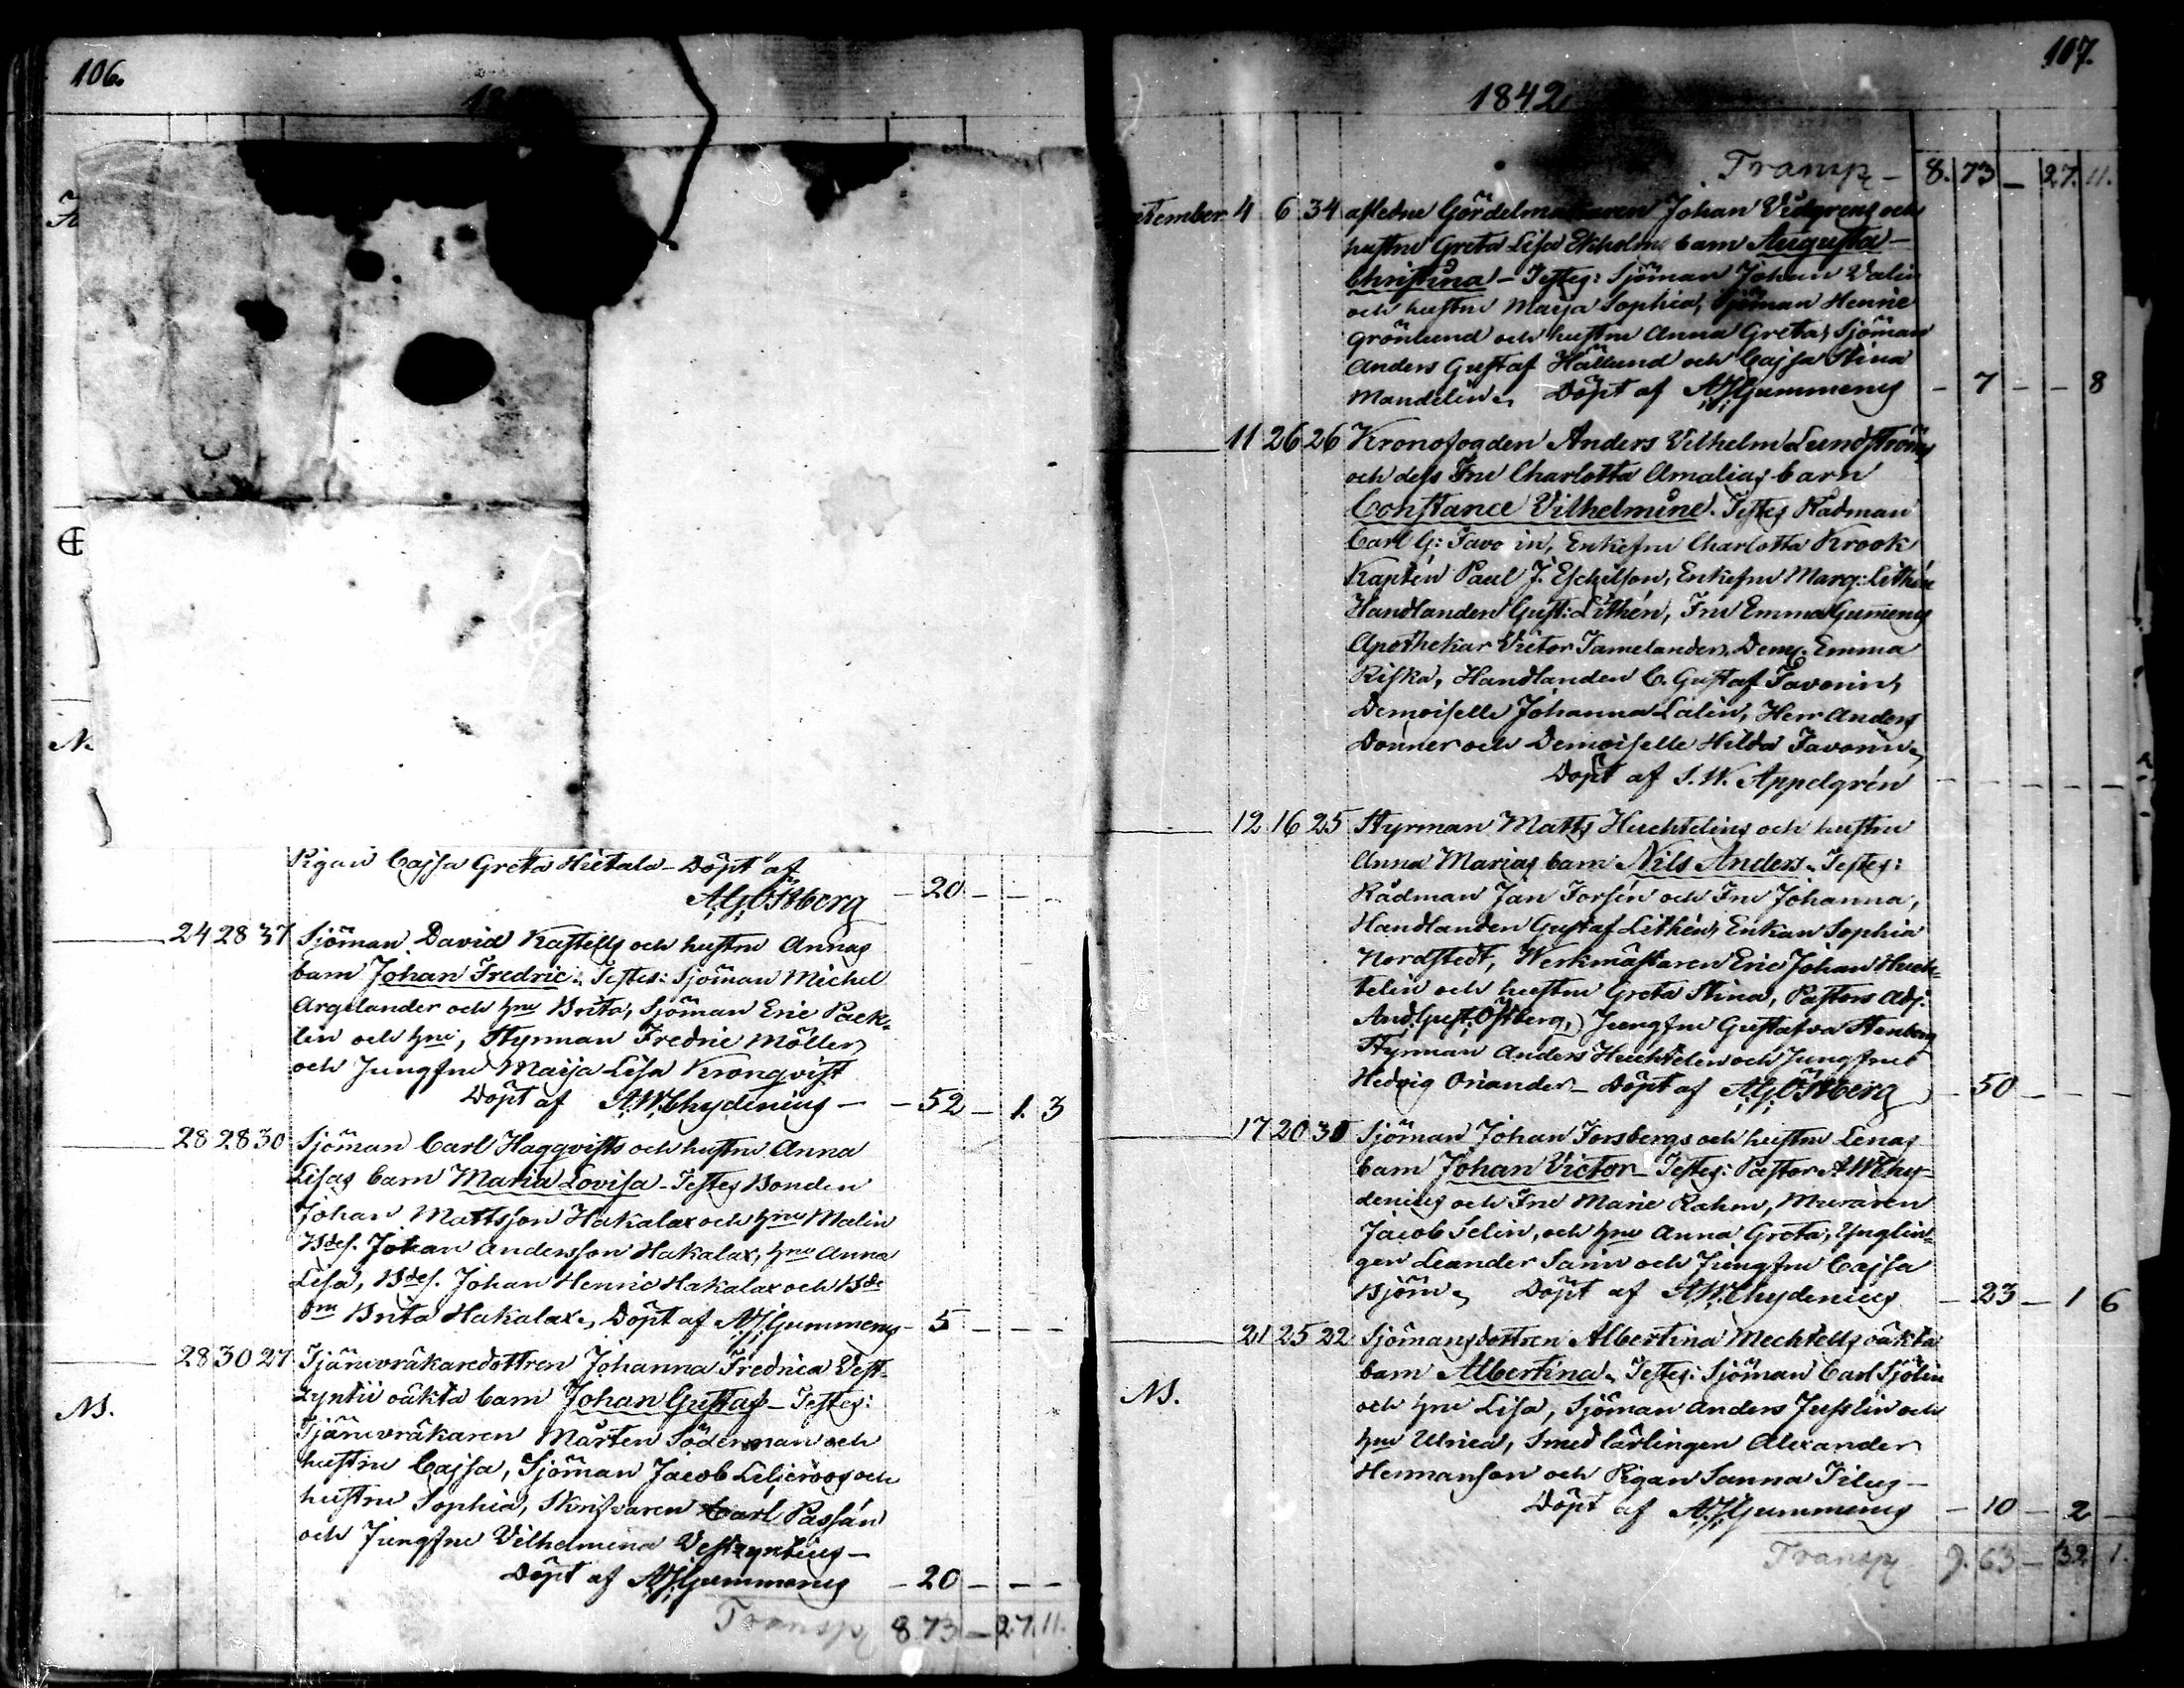 106.
Pigan Cajsa Greta Hietala - Döpt af
A.G. Östberg - 20 - - -
24 28 37 Sjöman David Kastells och hustru Annas
barn Johan Fredric. Testes: Sjöman Michel
Argelander och hru Brita, Sjöman Eric Pack-
lin och hru, Styrman Fredric Möller
och Jungfru Maija Lisa Kronqvist
Döpt af A.W. Chydenius - - 52 - 1. 3
28 28 30 Sjöman Carl Haggqvists och hustru Anna
Lisas barn Maria Lovisa - Testes Bonden
Johan Mattsson Hakalax och hru Malin
Bdes. Johan Andersson Hakalax, hru Anna
Lisa, Bdes. Johan Henric Hakalax och Bde
Brita Hakalax. Döpt af A.J. Gummerus - 5 - - -
28 30 27 Tjäruvräkaredottren Johanna Fredrica Vest-
zyntii oäkta barn Johan Gustaf - Testes:
N. Tjäruvräkaren Mårten Söderman och
hustru Cajsa, Sjöman Jacob Liljeroos och
hustru Sophia, Skrifvaren Carl Passán
och Jungfru Vilhelmina Vestzyntius -
Döpt af A.J. Gummerus - 20 - - -
Transp 8. 73 - 27. 11.
107.
1842
Transp - 8. 73 - 27. 11.
tember 4 6 34 afledne Gördelmakaren Johan Vidgrens och
hustru Greta Lisa Ekholms barn Augusta -
Christina - Testes: Sjöman Johan Valin
och hustru Maija Sophia, Sjöman Henric
Grönlund och hustru Anna Greta, Sjöman
Anders Gustaf Hällund och Cajsa Stina
Mandelin. Döpt af A.J. Gummerus - 7 - - 8
11 26 26 Kronofogden Anders Vilhelm Lundströms
och dess Fru Charlotta Amalias barn
Constance Vilhelmine. Testes Rådman
Carl G: Favo in, Enkefru Charlotta Krook
Kaptén Paul J. Eschilson, Enkefru Marg: Lithén
Handlanden Gust: Lithén, Fru Emma Gummerus
Apothekar Victor Tamelander, Dems. Emma
Riska, Handlanden C. Gustaf Favorin,
Demoiselle Johanna Lalin, Herr Anders
Donner och Demoiselle Hilda Favorin.
Döpt af S. W. Appelgrén - - - - -
12 16 25 Styrman Matts Huchtelins och hustru
Anna Marias barn Nils Anders. Testes:
Rådman Jan Forsén och Fru Johanna,
Handlanden Gustaf Lithén, Enkan Sophia
Nordstedt, Werkmästaren Eric Johan Huch-
telin och hustru Greta Stina, Pastors Adj.
And. Gust. Östberg, Jungfru Gustafva Stenberg
Styrman Anders Huchtelin och Jungfru
Hedvig Oriander - Döpt af A.G. Östberg - 50 - - -
17 20 30 Sjöman Johan Forsbergs och hustru Lenas
barn Johan Victor - Testes: Pastor A W Chy-
denius och Fru Marie Rahm, Muraren
Jacob Selin, och hru Anna Greta, Ynglin-
gen Leander Sarin och Jungfru Cajsa
Björn. Döpt af A.W. Chydenius - 23 - 1 6
21 25 22 Sjömansdottren Albertina Mechtells oäkta
N. barn Albertina. Testes: Sjöman Carl Sjölin
och hru Lisa, Sjöman Anders Jusslin och
hru Ulrica, Smedlärlingen Alexander
Hermanson och Pigan Sanna Tilus -
Döpt af A.J. Gummerus - 10 - 2 -
Transp 9. 63 - 32 1.